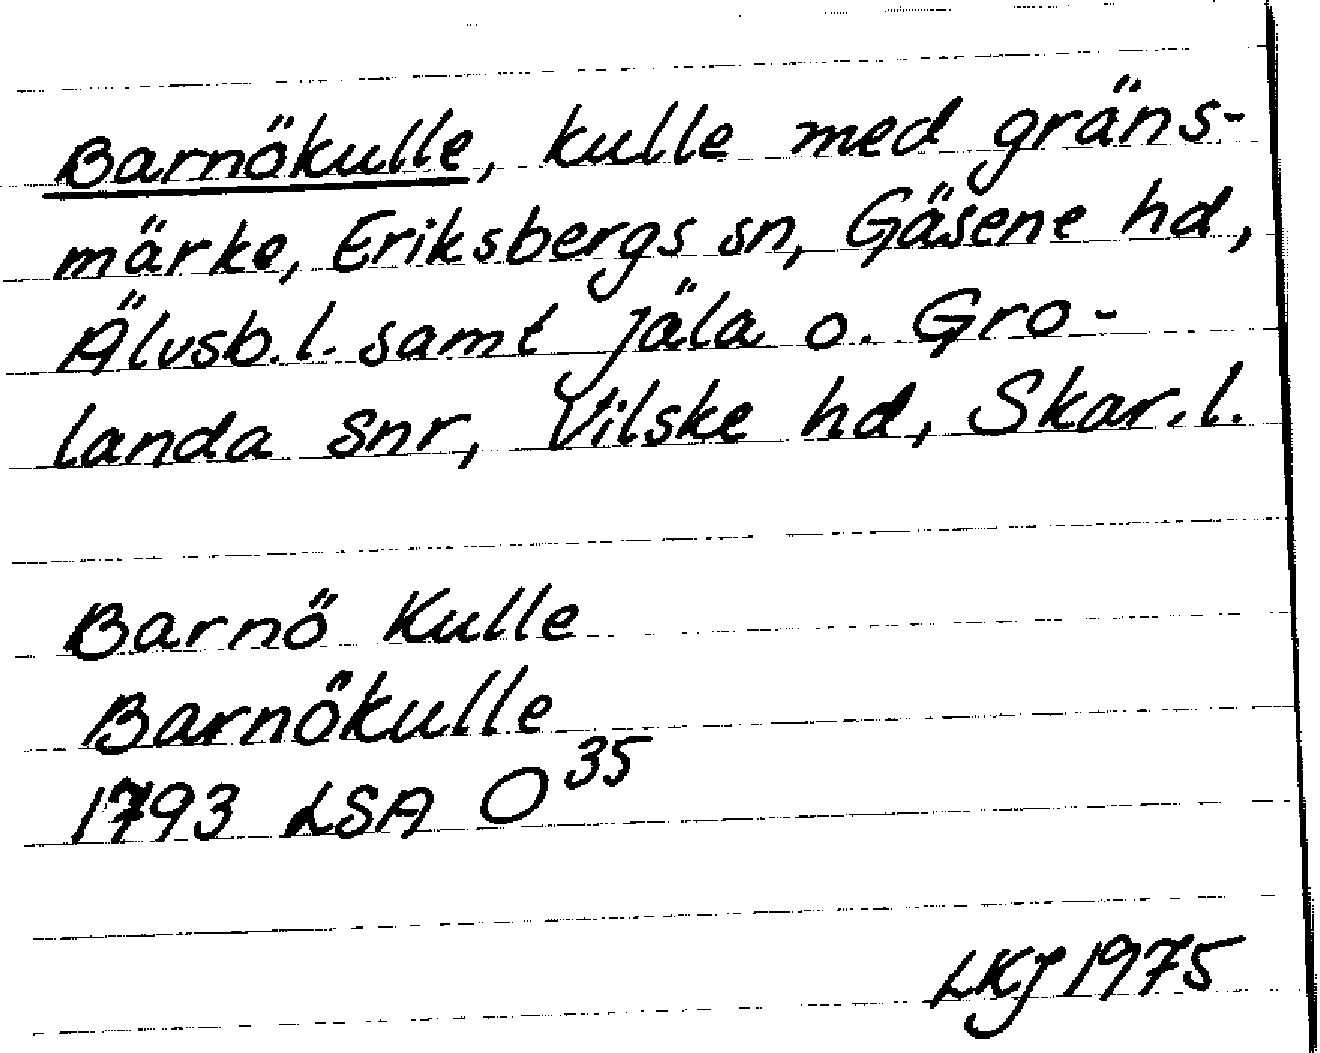 Barnökulle, kulle med gräns-
märke, Eriksbergs sn, Gäsene hd,
Älvsb.l. samt Jäla o. Gro-
landa snr, Vilske hd, Skar.l.
Barnö Kulle
Barnökulle
1793 LSA O 35
LKJ 1975